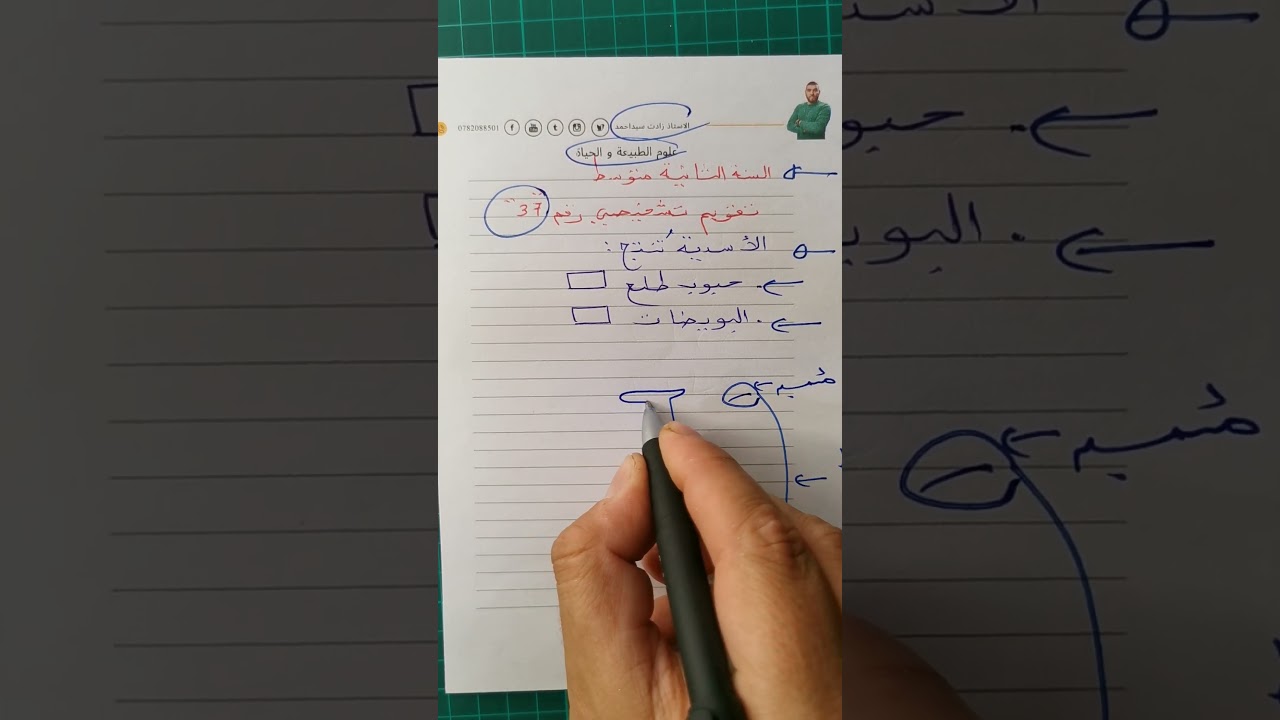 الاستاذ زادت سيداحمد 0782088501
علوم الطبيعة و الحياة
السنة الثانية متوسط
تقويم تشخيصي رقم "37"
الأسدية تُنتج :
. حبوب طلع
. البويضات